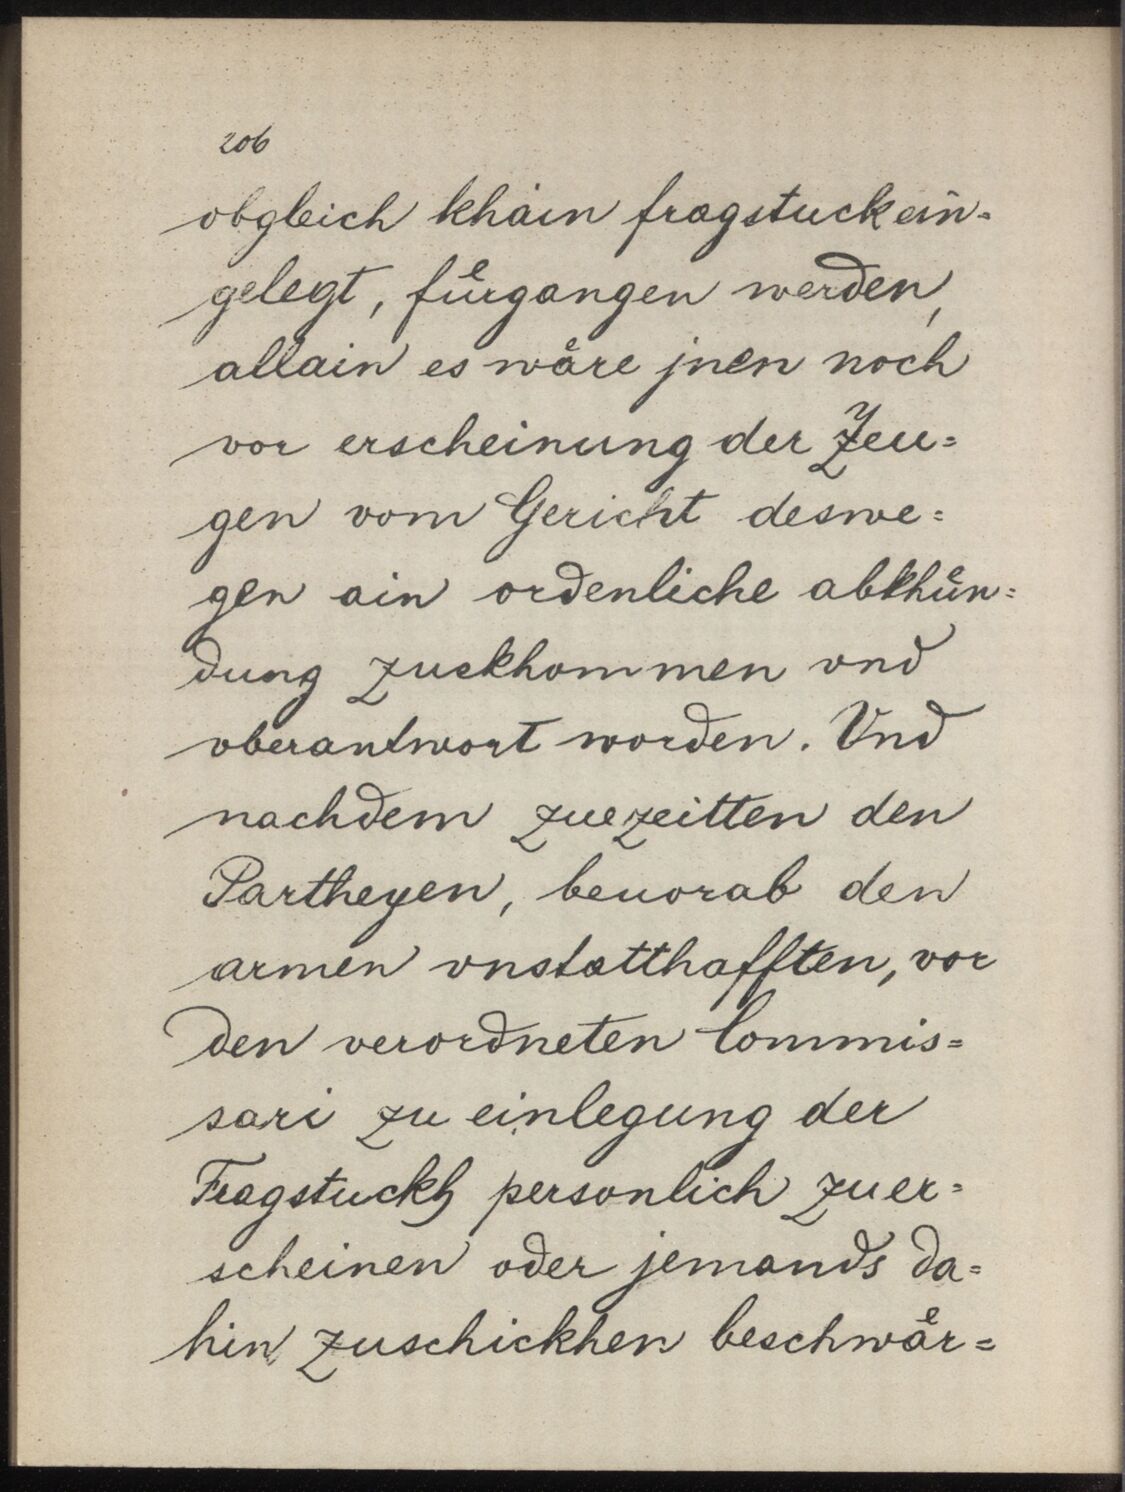 206
obgleich khain fragstuck ein=
gelegt, fuͤrgangen werden,
allain es waͤre jnen noch
vor erscheinung der Zeu=
gen vom Gericht deswe=
gen ain ordenliche abkhuͤn=
dung zuekhommen vnd
vberantwort worden. Vnd
nachdem zuezeitten den
Partheyen, beuorab den
armen vnstatthafften, vor
den verordneten Commis=
sari zu einlegung der
Fragstuckh personlich zu er=
scheinen oder jemands da=
hin zuschickhen beschwaͤr=